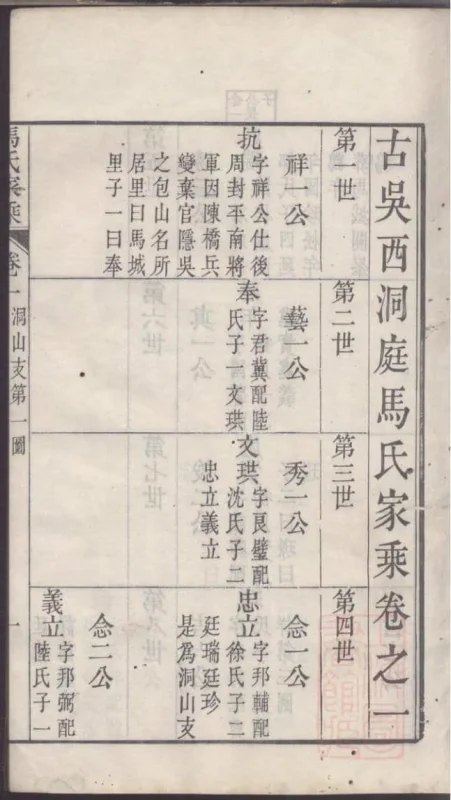 古吳西洞庭馬氏家乘卷之一
第一世
祥一公
抗
字祥公仕後
周封平南將
軍因陳橋兵
變棄官隱吳
之包山名所
居里曰馬城
里子一曰奉
第二世
藝一公
奉
字君冀配陸
氏子一文珙
第三世
秀一公
文珙
字艮璧配
沈氏子二
忠立義立
第四世
念一公
忠立
字邦輔配
徐氏子二
廷瑞廷珍
是為洞山支
念二公
義立
字邦弼配
陸氏子一
馬氏家乘
卷一
洞山支第一圖
一